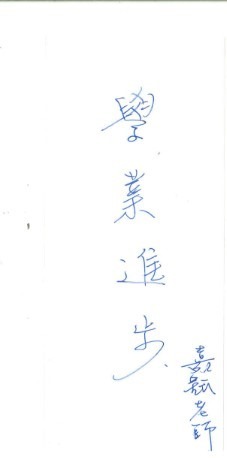 學業進步
嘉穎老師